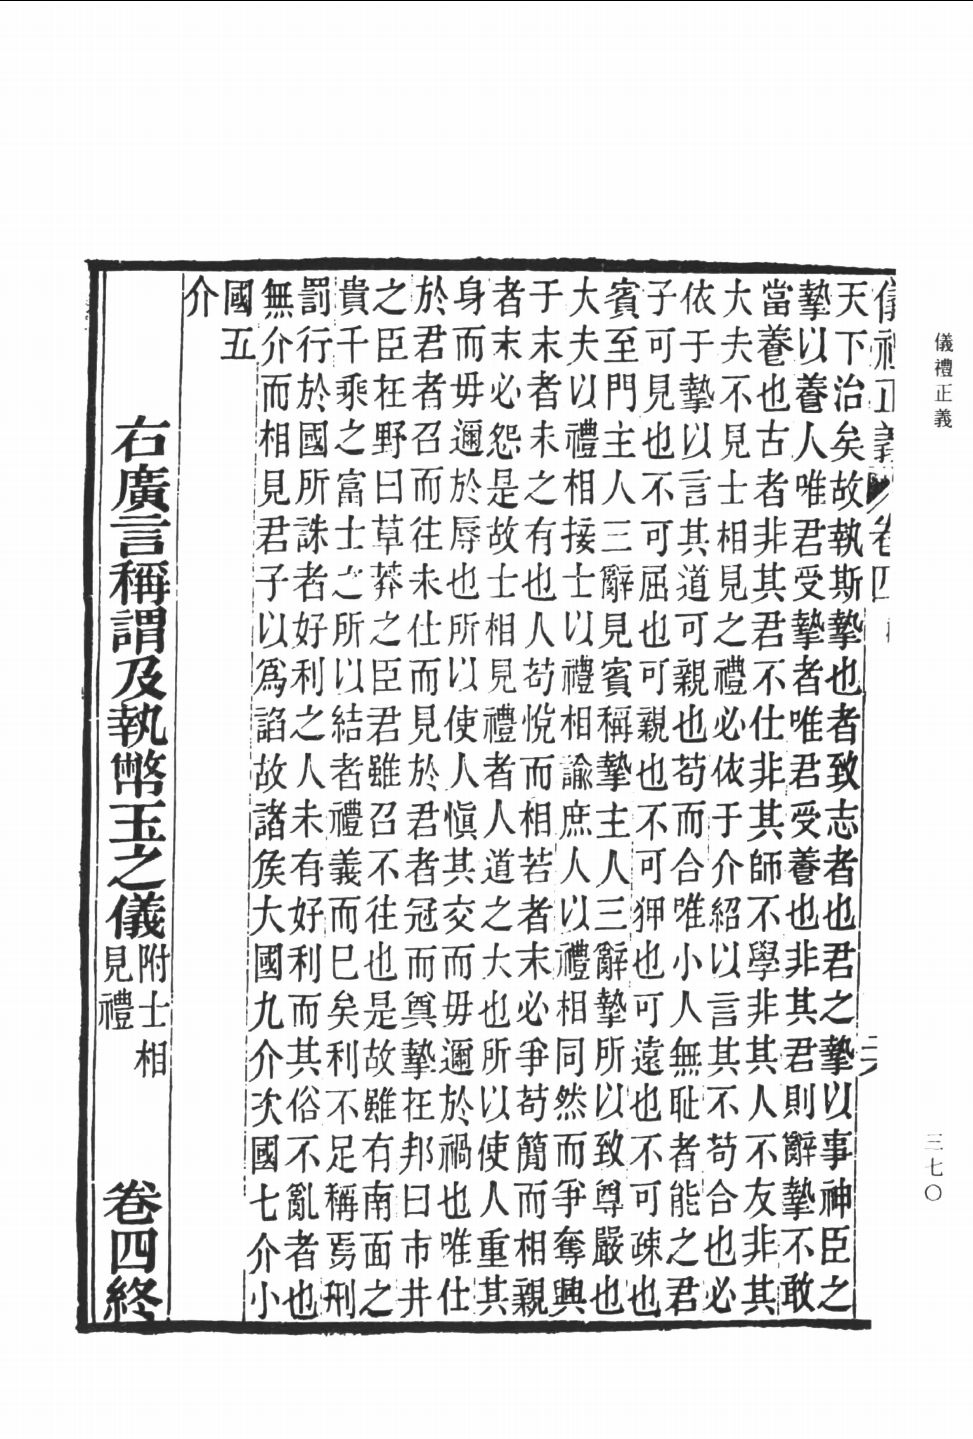 儀禮正義
三七〇
儀禮正義 卷四
天下治矣故執斯摯也者致志者也君之摯以事神臣之
摯以養人唯君受摯者唯君受養也非其君則辭摯不敢
當養也古者非其君不仕非其師不學非其人不友非其
大夫不見士相見之禮必依于介紹以言其不苟合也必
依于摯以言其道可親也苟而合唯小人無耻者能之君
子可見也不可屈也可親也不可狎也可遠也不可疎也
賓至門主人三辭見賓稱摯主人三辭摯所以致尊嚴也
大夫以禮相接士以禮相諭庶人以禮相同然而爭奪興
于末者未之有也人苟悅而相若者末必爭苟簡而相親
者末必怨是故士相見禮者人道之大也所以使人重其
身而毋邇於辱也所以使人愼其交而毋邇於禍也唯仕
於君者召而往未仕而見於君者冠而奠摯在邦曰市井
之臣在野曰草莽之臣君雖召不往也是故雖有南面之
貴千乘之富士之所以結者禮義而巳矣利不足稱焉刑
罰行於國所誅者好利之人未有好利而其俗不亂者也
無介而相見君子以爲諂故諸矦大國九介次國七介小
國五
介
右廣言稱謂及執幣玉之儀 附士相見禮 卷四終